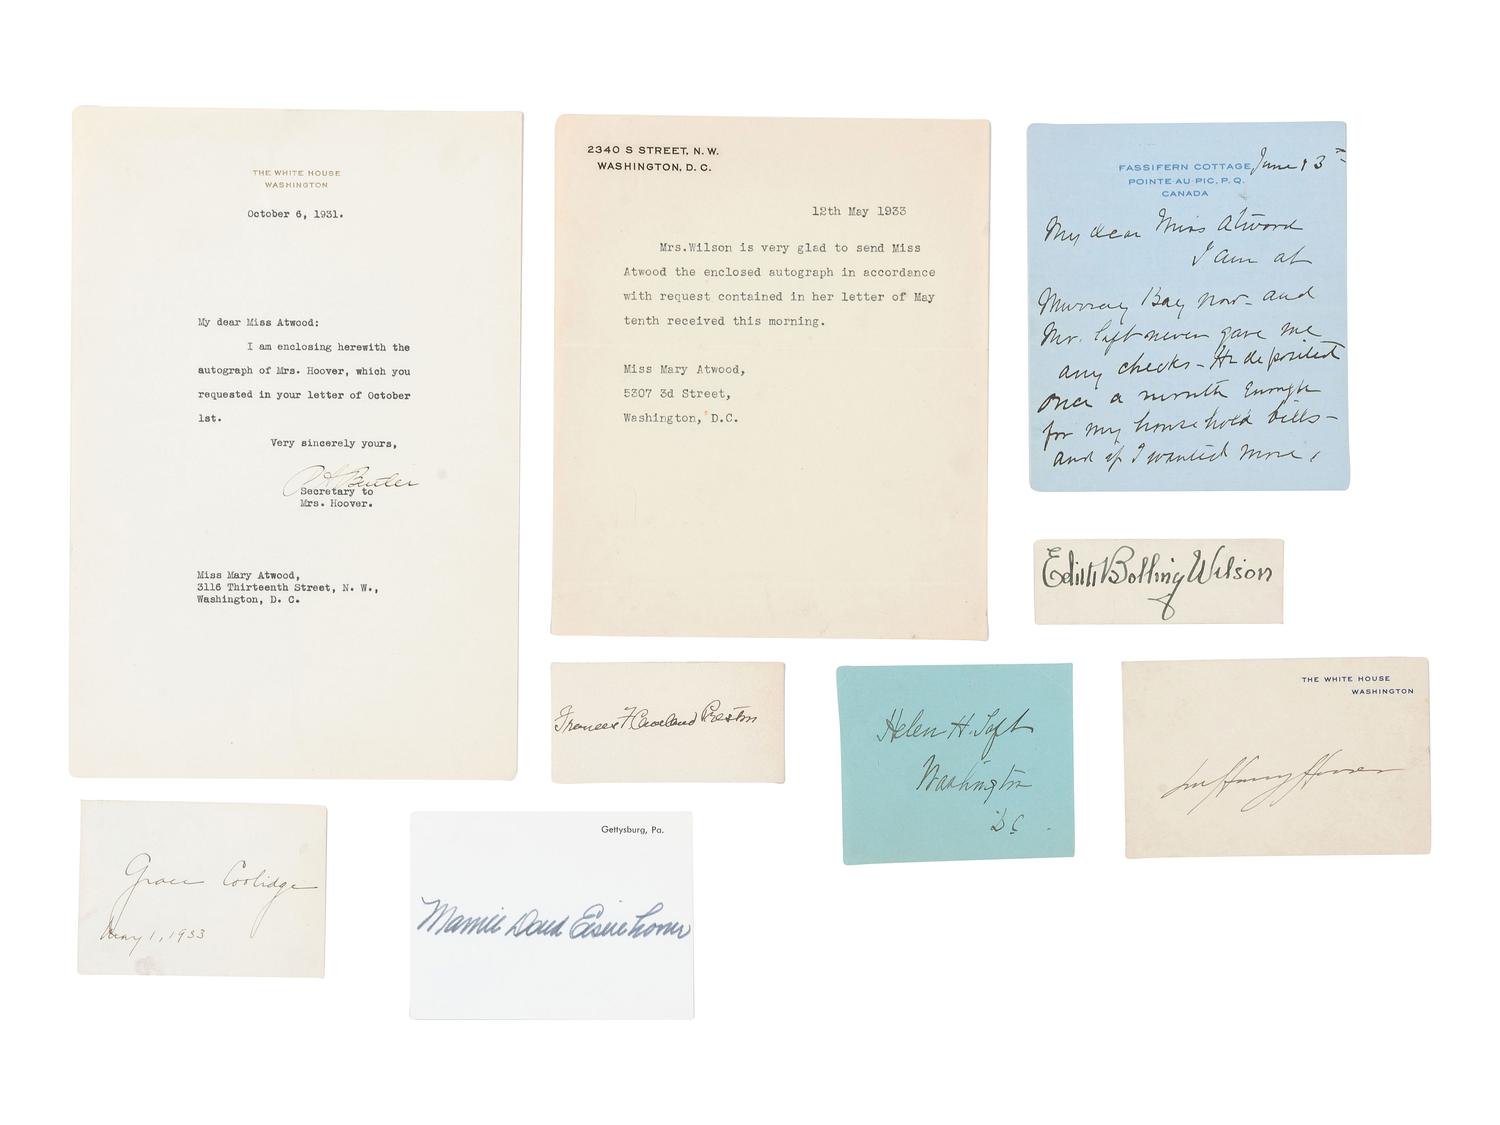 THE WHITE HOUSE
WASHINGTON
October 6, 1931.
My dear Miss Atwood:
I am enclosing herewith the
autograph of Mrs. Hoover, which you
requested in your letter of October
1st.
Very sincerely yours,
Butler
Secretary to
Mrs. Hoover.
Miss Mary Atwood,
3116 Thirteenth Street, N. W.,
Washington, D. C.
2340 S STREET, N. W.
WASHINGTON, D. C.
12th May 1933
Mrs.Wilson is very glad to send Miss
Atwood the enclosed autograph in accordance
with request contained in her letter of May
tenth received this morning.
Miss Mary Atwood,
5307 3d Street,
Washington, D.C.
FASSIFERN COTTAGE, June 13th
POINTE-AU-PIC, P. Q.
CANADA
My dear Miss Atwood
I am at
Murray Bay now - and
Mr. Taft never gave me
any checks - He deposited
once a month enough
for my household bills -
and if I wanted more,
Edith Bolling Wilson
Frances F. Cleveland Preston
Helen H. Taft
Washington
D C.
THE WHITE HOUSE
WASHINGTON
Lou Henry Hoover
Grace Coolidge
May 1, 1933
Gettysburg, Pa.
Mamie Doud Eisenhower